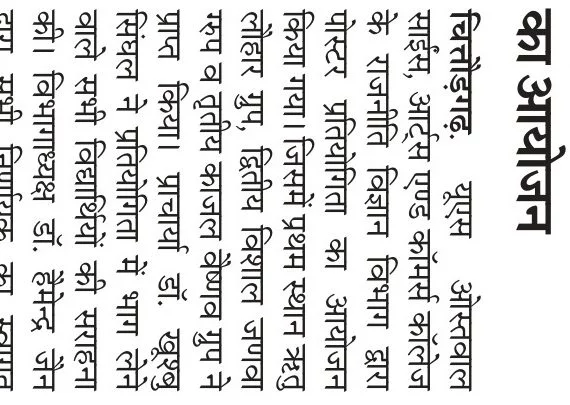 का आयोजन
चित्तौड़गढ़. यूएस ओस्तवाल
साइंस, आर्ट्स एण्ड कॉमर्स कॉलेज
के राजनीति विज्ञान विभाग द्वारा
पोस्टर प्रतियोगिता का आयोजन
किया गया। जिसमें प्रथम स्थान ऋतु
लौहार ग्रुप, द्वितीय विशाल जणवा
ग्रुप व तृतीय काजल वैष्णव ग्रुप ने
प्राप्त किया। प्राचार्या डॉ. खुशबु
सिंघल ने प्रतियोगिता में भाग लेने
वाले सभी विद्यार्थियों की सराहना
की। विभागाध्यक्ष डॉ. हेमेन्द्र जैन
द्वारा सभी निर्णायक का स्वागत